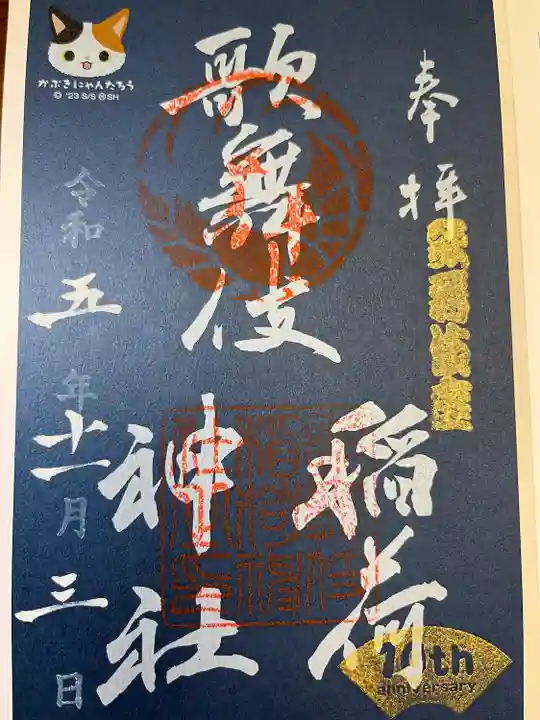 奉拝
歌舞伎
稲荷
神社
令和五年十一月三日
かぶきにゃんたろう
© '23 S/S ⓇSH
10th
anniversary